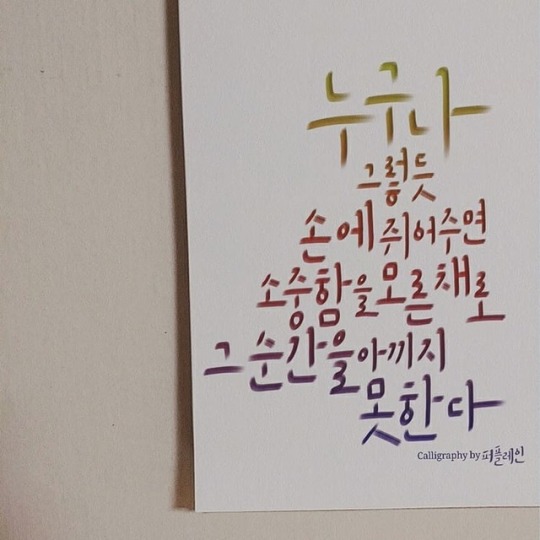 누구나
그렇듯
손에 쥐어주면
소중함을 모른 채로
그 순간을 아끼지
못한다
Calligraphy by 퍼플레인